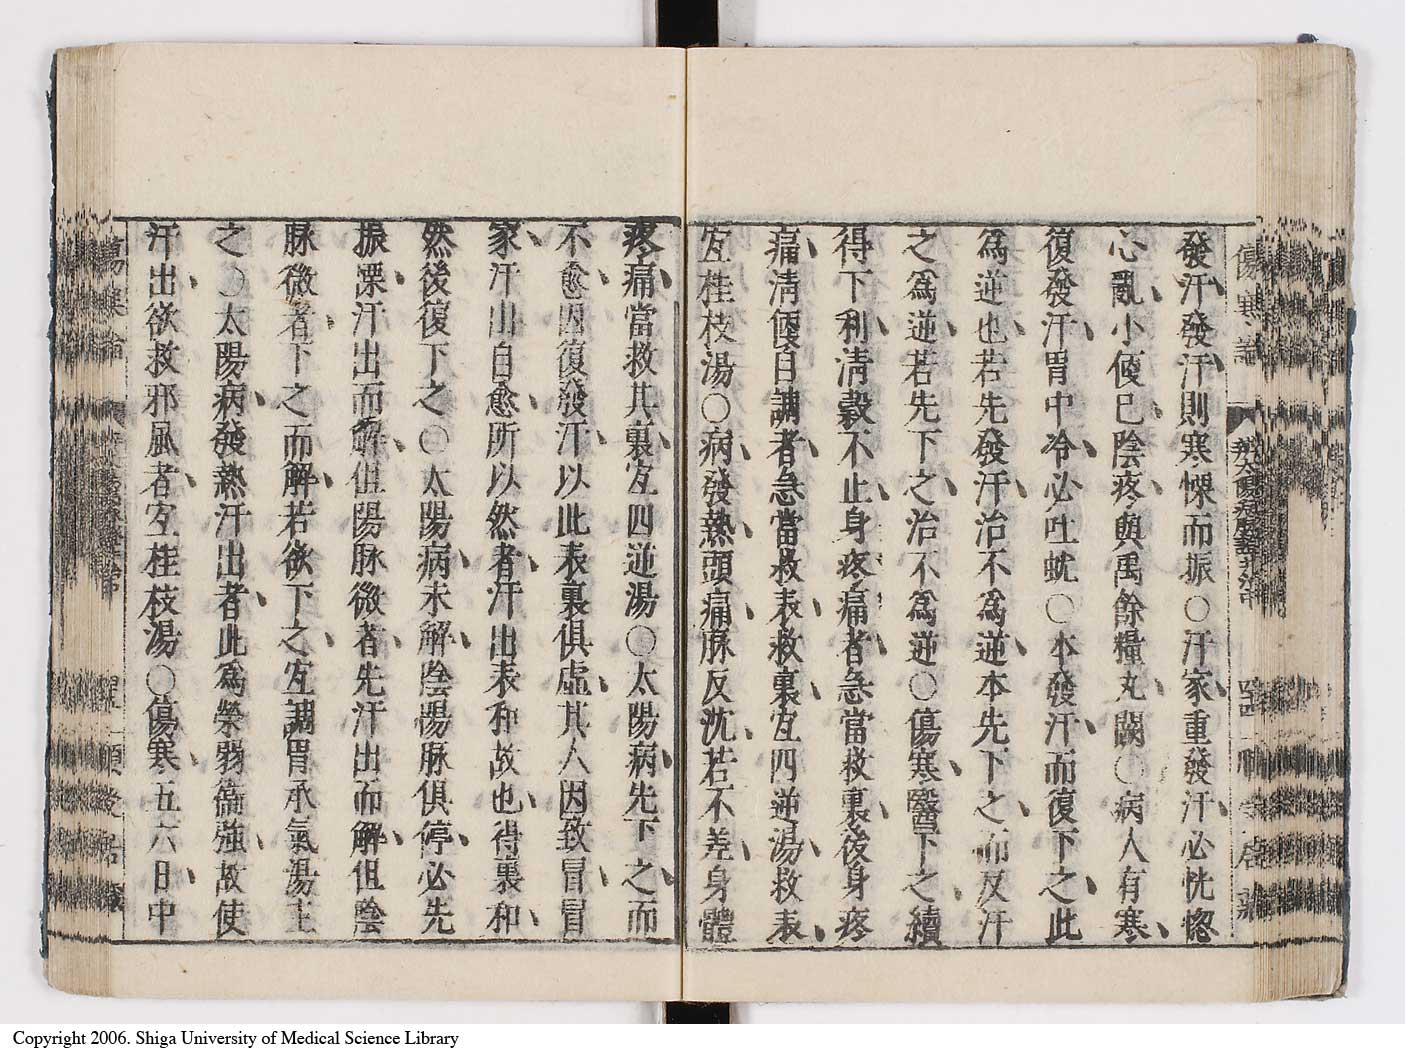 發汗發汗則寒慄而振○汗家重發汗必恍惚
心亂小便已陰疼與禹餘糧丸闕○病人有寒
復發汗胃中冷必吐蚘○本發汗而復下之此
為逆也若先發汗治不為逆本先下之而反汗
之為逆若先下之治不為逆○傷寒醫下之續
得下利清穀不止身疼痛者急當救裏後身疼
痛清便自調者急當救表救裏宐四逆湯救表
宐桂枝湯○病發熱頭痛脉反沈若不差身體
疼痛當救其裏宐四逆湯○太陽病先下之而
不愈因復發汗以此表裏俱虛其人因致冒冒
家汗出自愈所以然者汗出表和故也得裏和
然後復下之○太陽病未解陰陽脉俱停必先
振慄汗出而解但陽脉微者先汗出而解但陰
脉微者下之而解若欲下之宐調胃承氣湯主
之○太陽病發熱汗出者此為榮弱衞強故使
汗出欲救邪風者宐桂枝湯○傷寒五六日中
傷寒論
辨太陽病脉證并治中
Copyright 2006. Shiga University of Medical Science Library